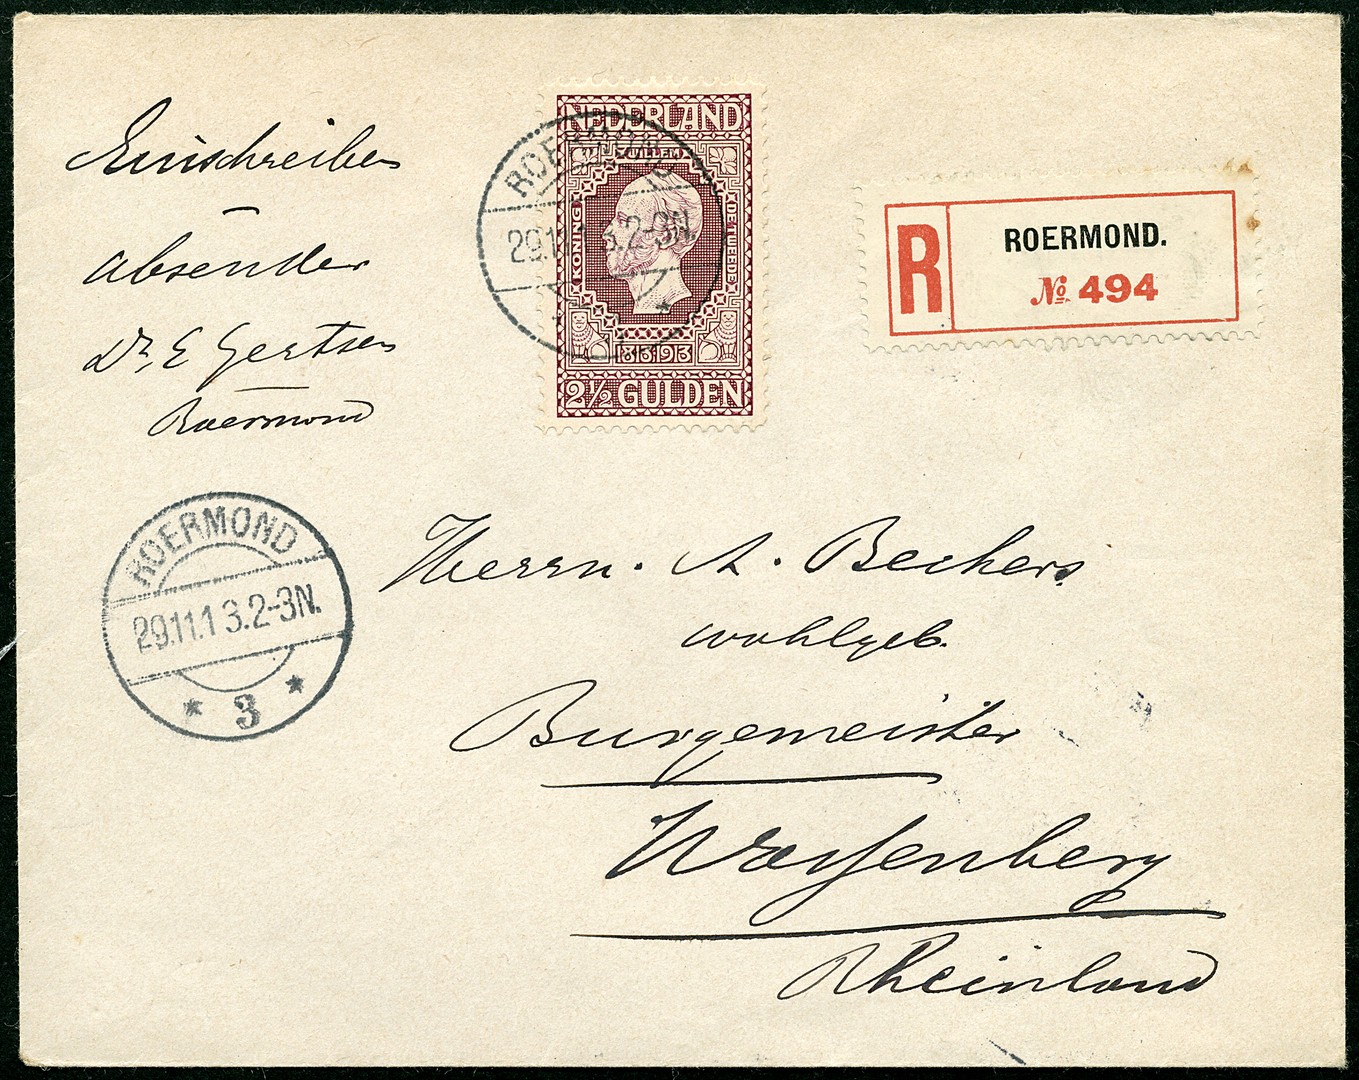 Einschreiben
absender
Dr. E Gertsen
Roermond
NEDERLAND
WILLEM
KONING
DE TWEEDE
1813·1913
2½ GULDEN
ROERMOND
29.11.13.2-3N.
R
ROERMOND.
№ 494
ROERMOND
29.11.13.2-3N.
* 3 *
Herrn. A. Beckers
wohlgeb.
Burgemeister
Wassenberg
Rheinland